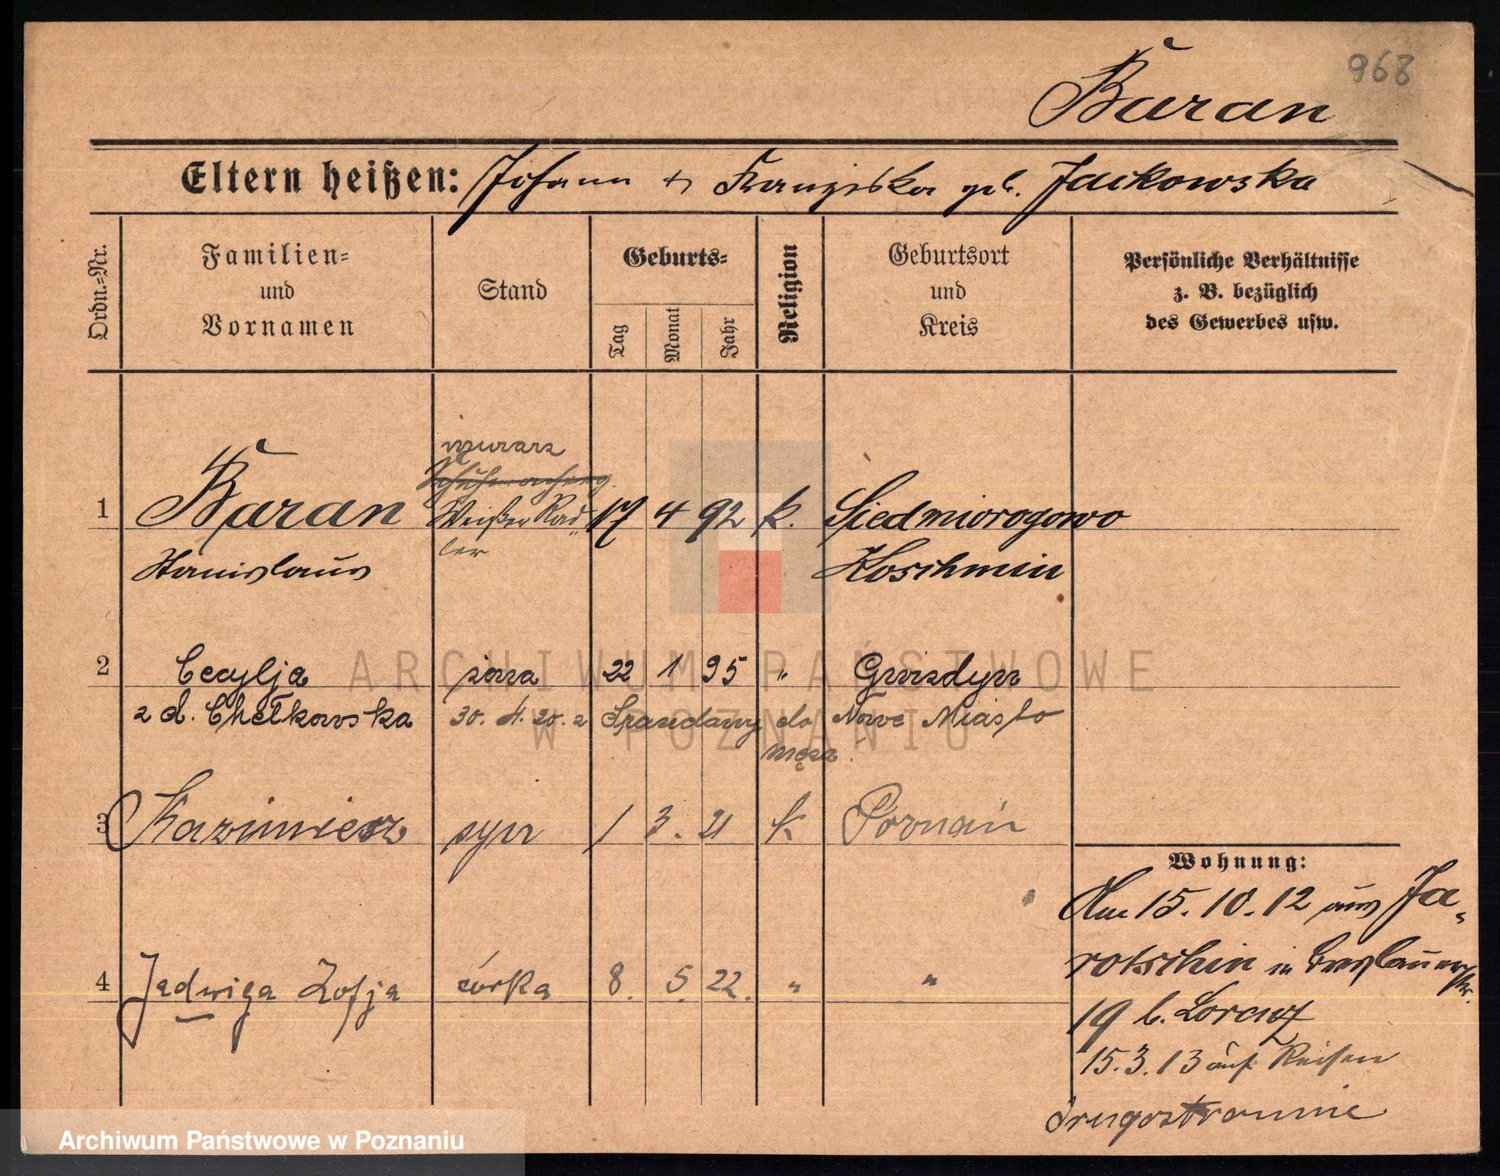 968
Baran
Eltern heißen: Johann + Franziska geb. Jackowska
Ordn.-Nr.
Familien- und Vornamen
Stand
Geburts-
Tag
Monat
Jahr
Religion
Geburtsort und Kreis
Persönliche Verhältnisse z. B. bezüglich des Gewerbes usw.
murarz
1 Baran 17 4 92 k. Siedmiorogowo
Stanislaus Koschmin
2 Cecylja żona 22 1 95 " Gwizdyn
z d. Chełkowska 30. 4. 20. z do Nowe Miasto
męża
3 Kazimierz syn 1 3. 21 k Poznań
4 Jadwiga Zofja córka 8. 5. 22. " "
Wohnung:
Am 15. 10. 12 aus Ja-
rotschin in Breslauerstr.
19 b. Lorenz
15.3.13 auf Reisen
drugostronnie
ARCHIWUM PAŃSTWOWE
W POZNANIU
Archiwum Państwowe w Poznaniu